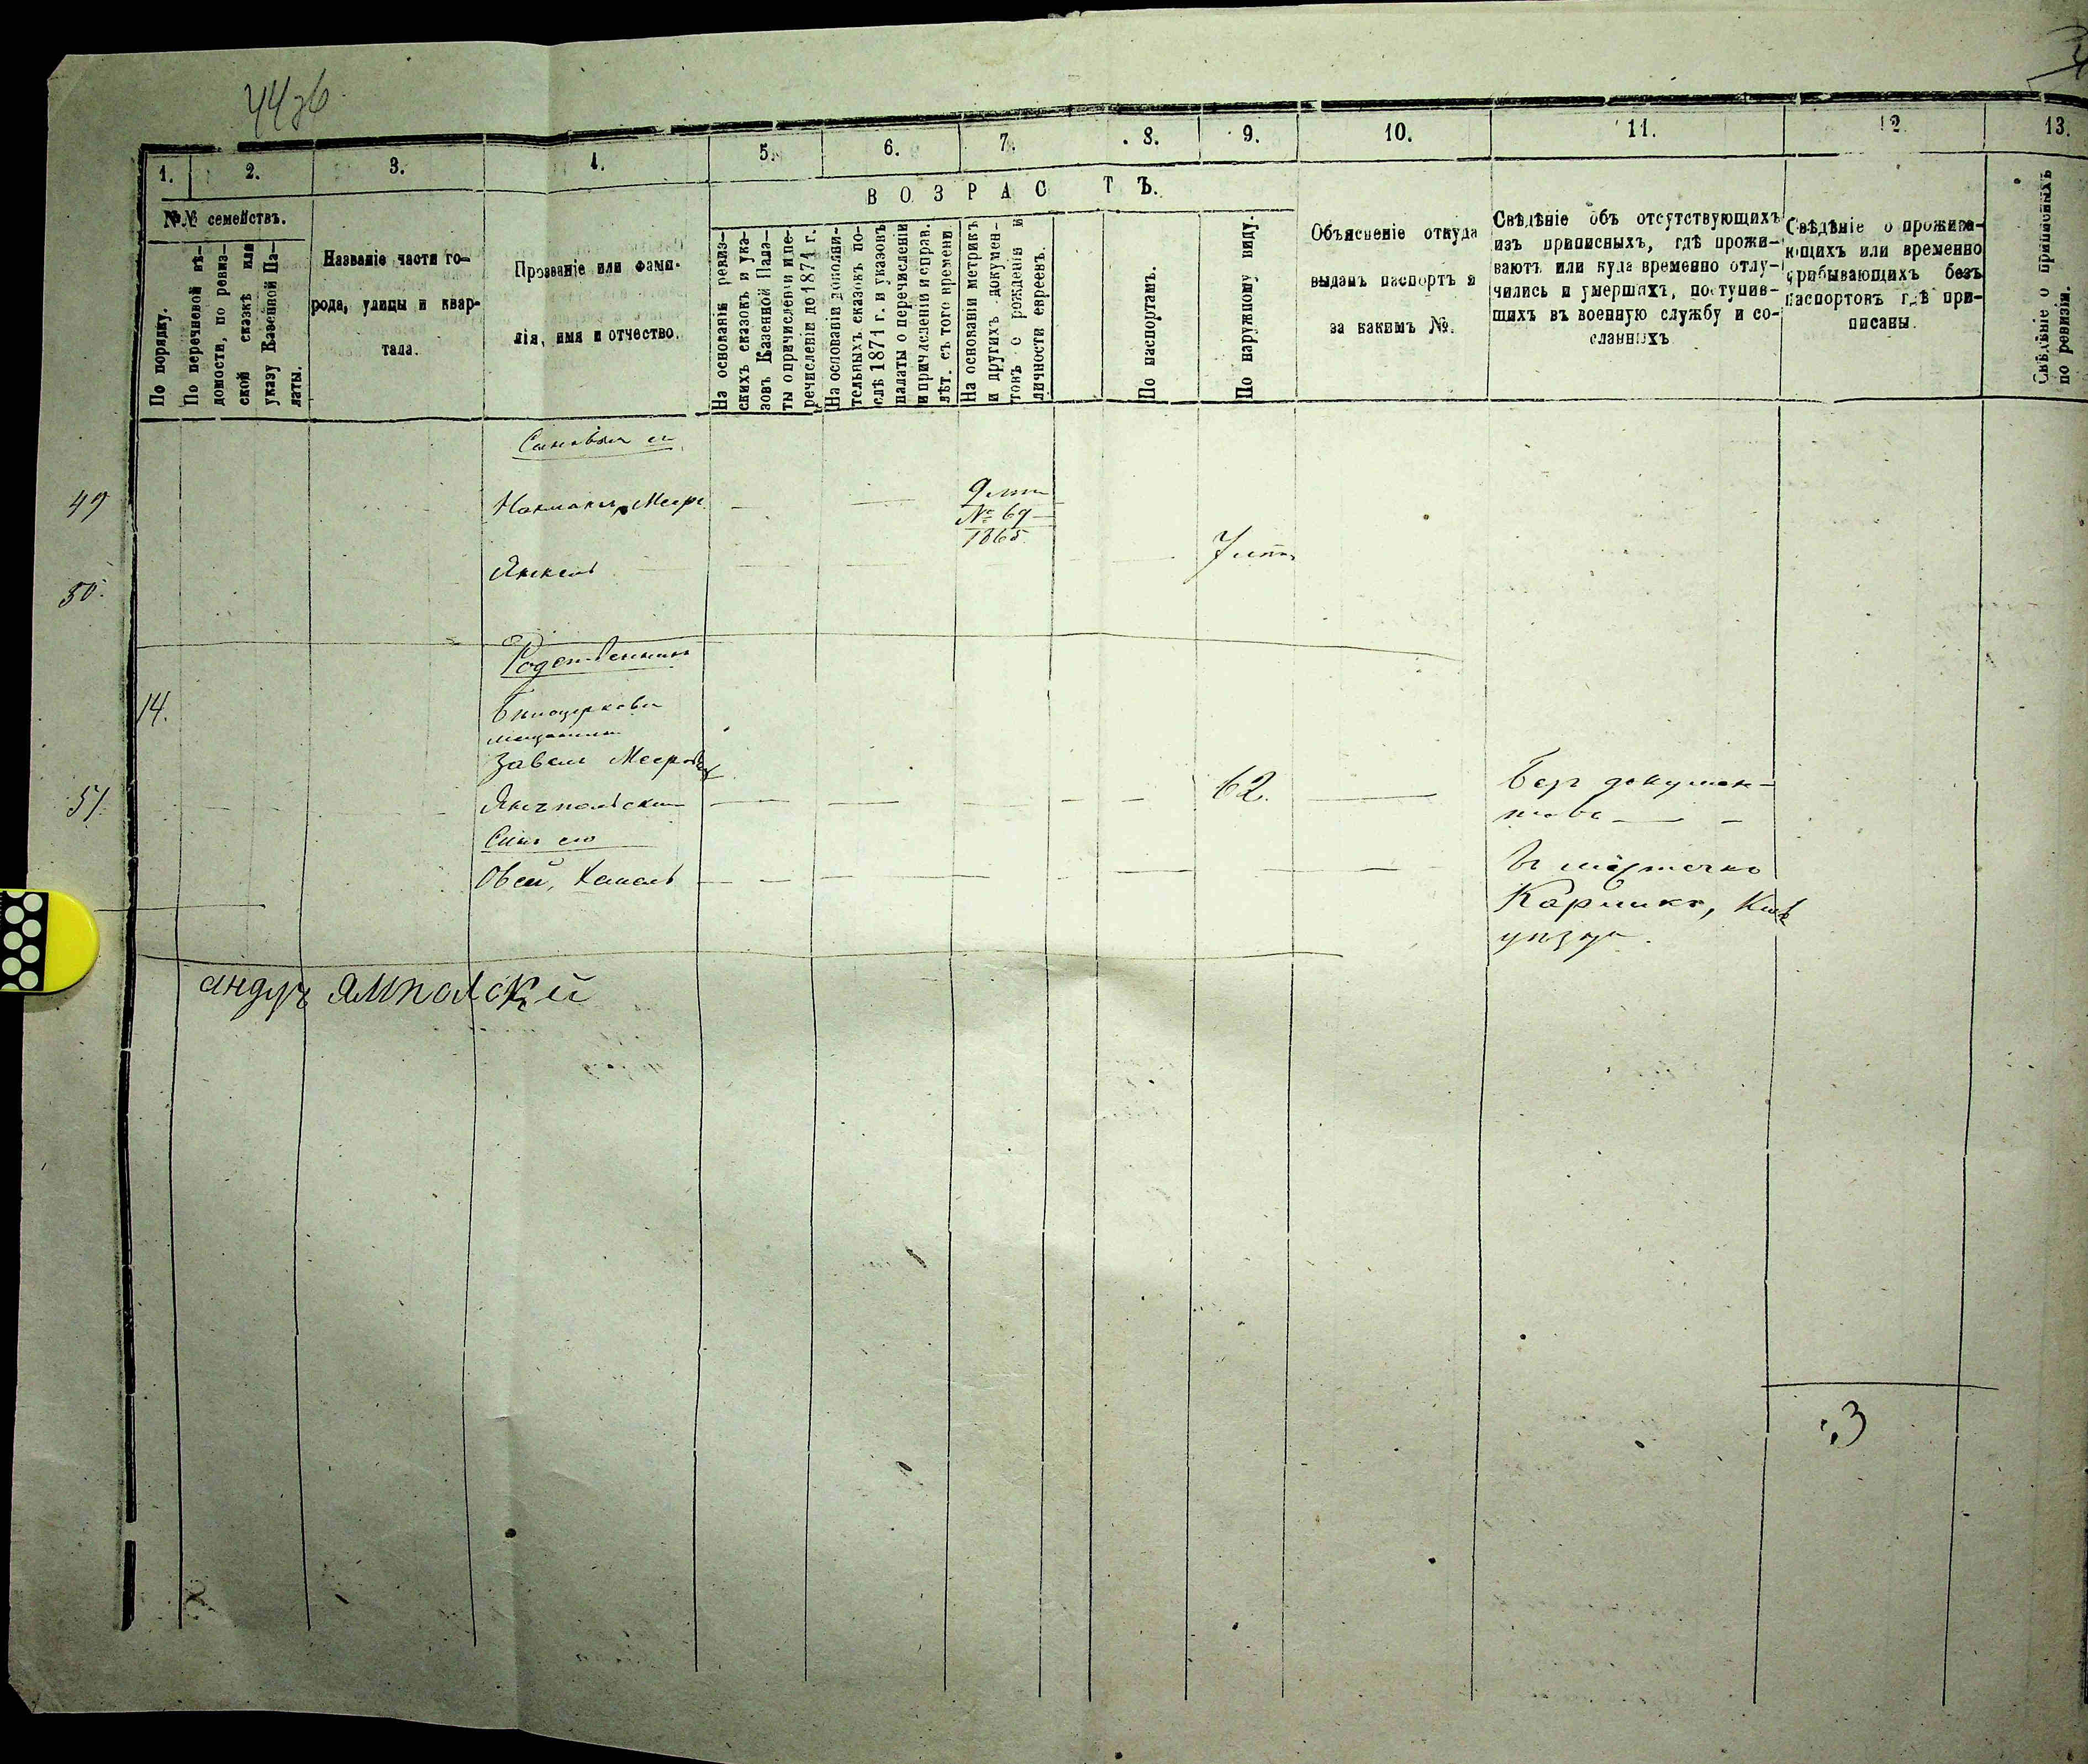 44 зб
1. 2. 3. 4. 5. 6. 7. 8. 9. 10. 11. 12. 13.
ВОЗРАСТЪ.
№№ семействъ.
По порядку.
По перечневой вѣ-
домости, по ревиз-
ской сказкѣ или
указу Казенной Па-
латы.
Названіе части го-
рода, улицы и квар-
тала.
Прозваніе или фами-
лія, имя и отчество.
На основаніи ревиз-
скихъ сказокъ и ука-
зовъ Казенной Пала-
ты о причисленіи и пе-
речисленіи до 1871 г.
На основаніи дополни-
тельныхъ сказокъ по-
слѣ 1871 г. и указовъ
палаты о перечисленіи
и причисленіи и справ.
лѣт. съ того времени.
На основаніи метрикъ
и другихъ докумен-
товъ о рожденіи и
личности евреевъ.
По паспортамъ.
По наружному виду.
Объясненіе откуда
выданъ паспортъ и
за какимъ №.
Свѣдѣніе объ отсутствующихъ
изъ приписныхъ, гдѣ прожи-
ваютъ или куда временно отлу-
чились и умершихъ, поступив-
шихъ въ военную службу и со-
сланныхъ
Свѣдѣніе о прожива-
ющихъ или временно
прибывающихъ безъ
паспортовъ гдѣ при-
писаны.
Свѣдѣніе о приписныхъ
по ревизіи.
Сыновья ея
49
9 лѣтъ
№ 69
1865.
50. Янкель 7 лѣтъ
Родственникъ
14. Бѣлоцерковск
мещанинъ
Завель Мееровъ
51. Ямпольскій 62. Безъ докумен-
товъ
Сынъ его
Овсей, Хаимъ Въ мѣстечкѣ
уѣзда.
андуз Ямпольский
3